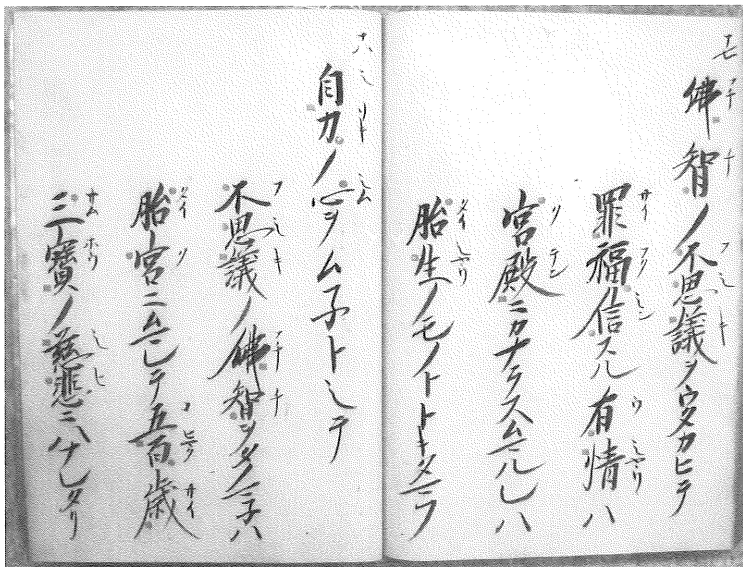 十七
佛智ノ不思議ヲウタカヒテ
罪福信スル有情ハ
宮殿ニカナラスムマルレハ
胎生ノモノトトキタマフ
十八
自力ノ心ヲム子トシテ
不思議ノ佛智ヲタノマ子ハ
胎宮ニムマレテ五百歳
三寶ノ慈悲ニハナレタリ